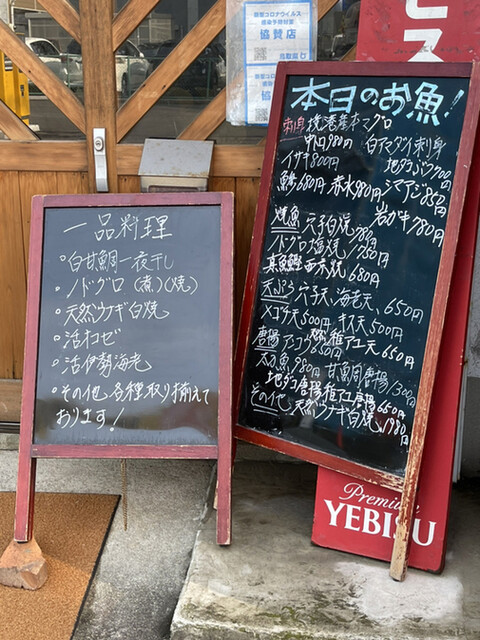 一品料理
・白甘鯛一夜干し
・ノドグロ(煮)(焼)
・天然ウナギ白焼
・活オコゼ
・活伊勢海老
・その他、各種取り揃えて
おります!
本日のお魚!
刺身 境港産本マグロ
中トロ980円 白アマダイ刺身
イサキ800円 地ダコぶつ700円
680円 赤水980円 シマアジ850円
岩がき780円
焼魚 穴子白焼780円
ノドグロ塩焼1780円
真魚鰹西京焼680円
天ぷら 穴子天、海老天、650円
メゴチ天500円 キス天500円
稚アユ天650円
唐揚 アコウ650円
太刀魚980円 甘鯛唐揚1300円
地ダコ唐揚 稚アユ唐揚650円
その他、天然ウナギ白焼1980円
新型コロナウイルス
感染予防対策
協賛店
鳥取県
新型コロナウイルス
協賛
ビス
Premium
YEBISU